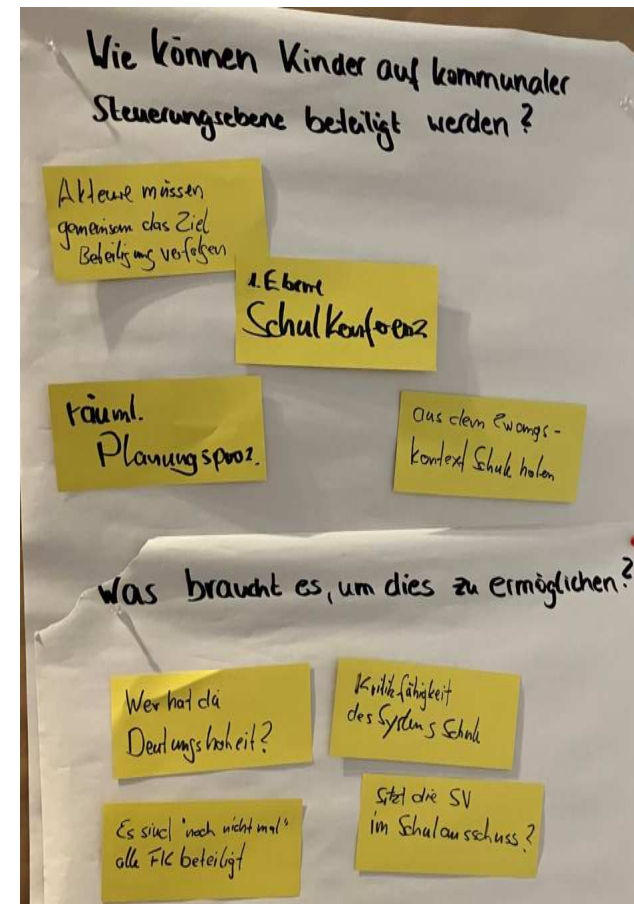 Wie können Kinder auf kommunaler
Steuerungsebene beteiligt werden?
Akteure müssen
gemeinsam das Ziel
Beteiligung verfolgen
1. Ebene
Schulkonferenz
räuml.
Planungsproz.
aus dem Zwangs-
kontext Schule holen
Was braucht es, um dies zu ermöglichen?
Wer hat da
Deutungshoheit?
Kritikfähigkeit
des Systems Schule
Es sind "noch nicht mal"
alle FK beteiligt
Sitzt die SV
im Schulausschuss?